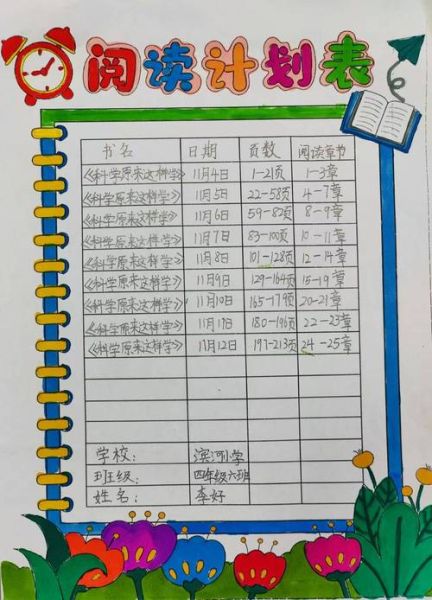 阅读计划表
书名 日期 页数 阅读章节
《科学原来这样学》 11月4日 1-21页 1-3章
《科学原来这样学》 11月5日 22-58页 4-7章
《科学原来这样学》 11月6日 59-82页 8-9章
《科学原来这样学》 11月7日 83-100页 10-11章
《科学原来这样学》 11月8日 101-128页 12-14章
《科学原来这样学》 11月9日 129-164页 15-19章
《科学原来这样学》 11月10日 165-179页 20-21章
《科学原来这样学》 11月11日 180-196页 22-23章
《科学原来这样学》 11月12日 197-213页 24-25章
学校: 滨河小学
班级: 四年级六班
姓名: 李好